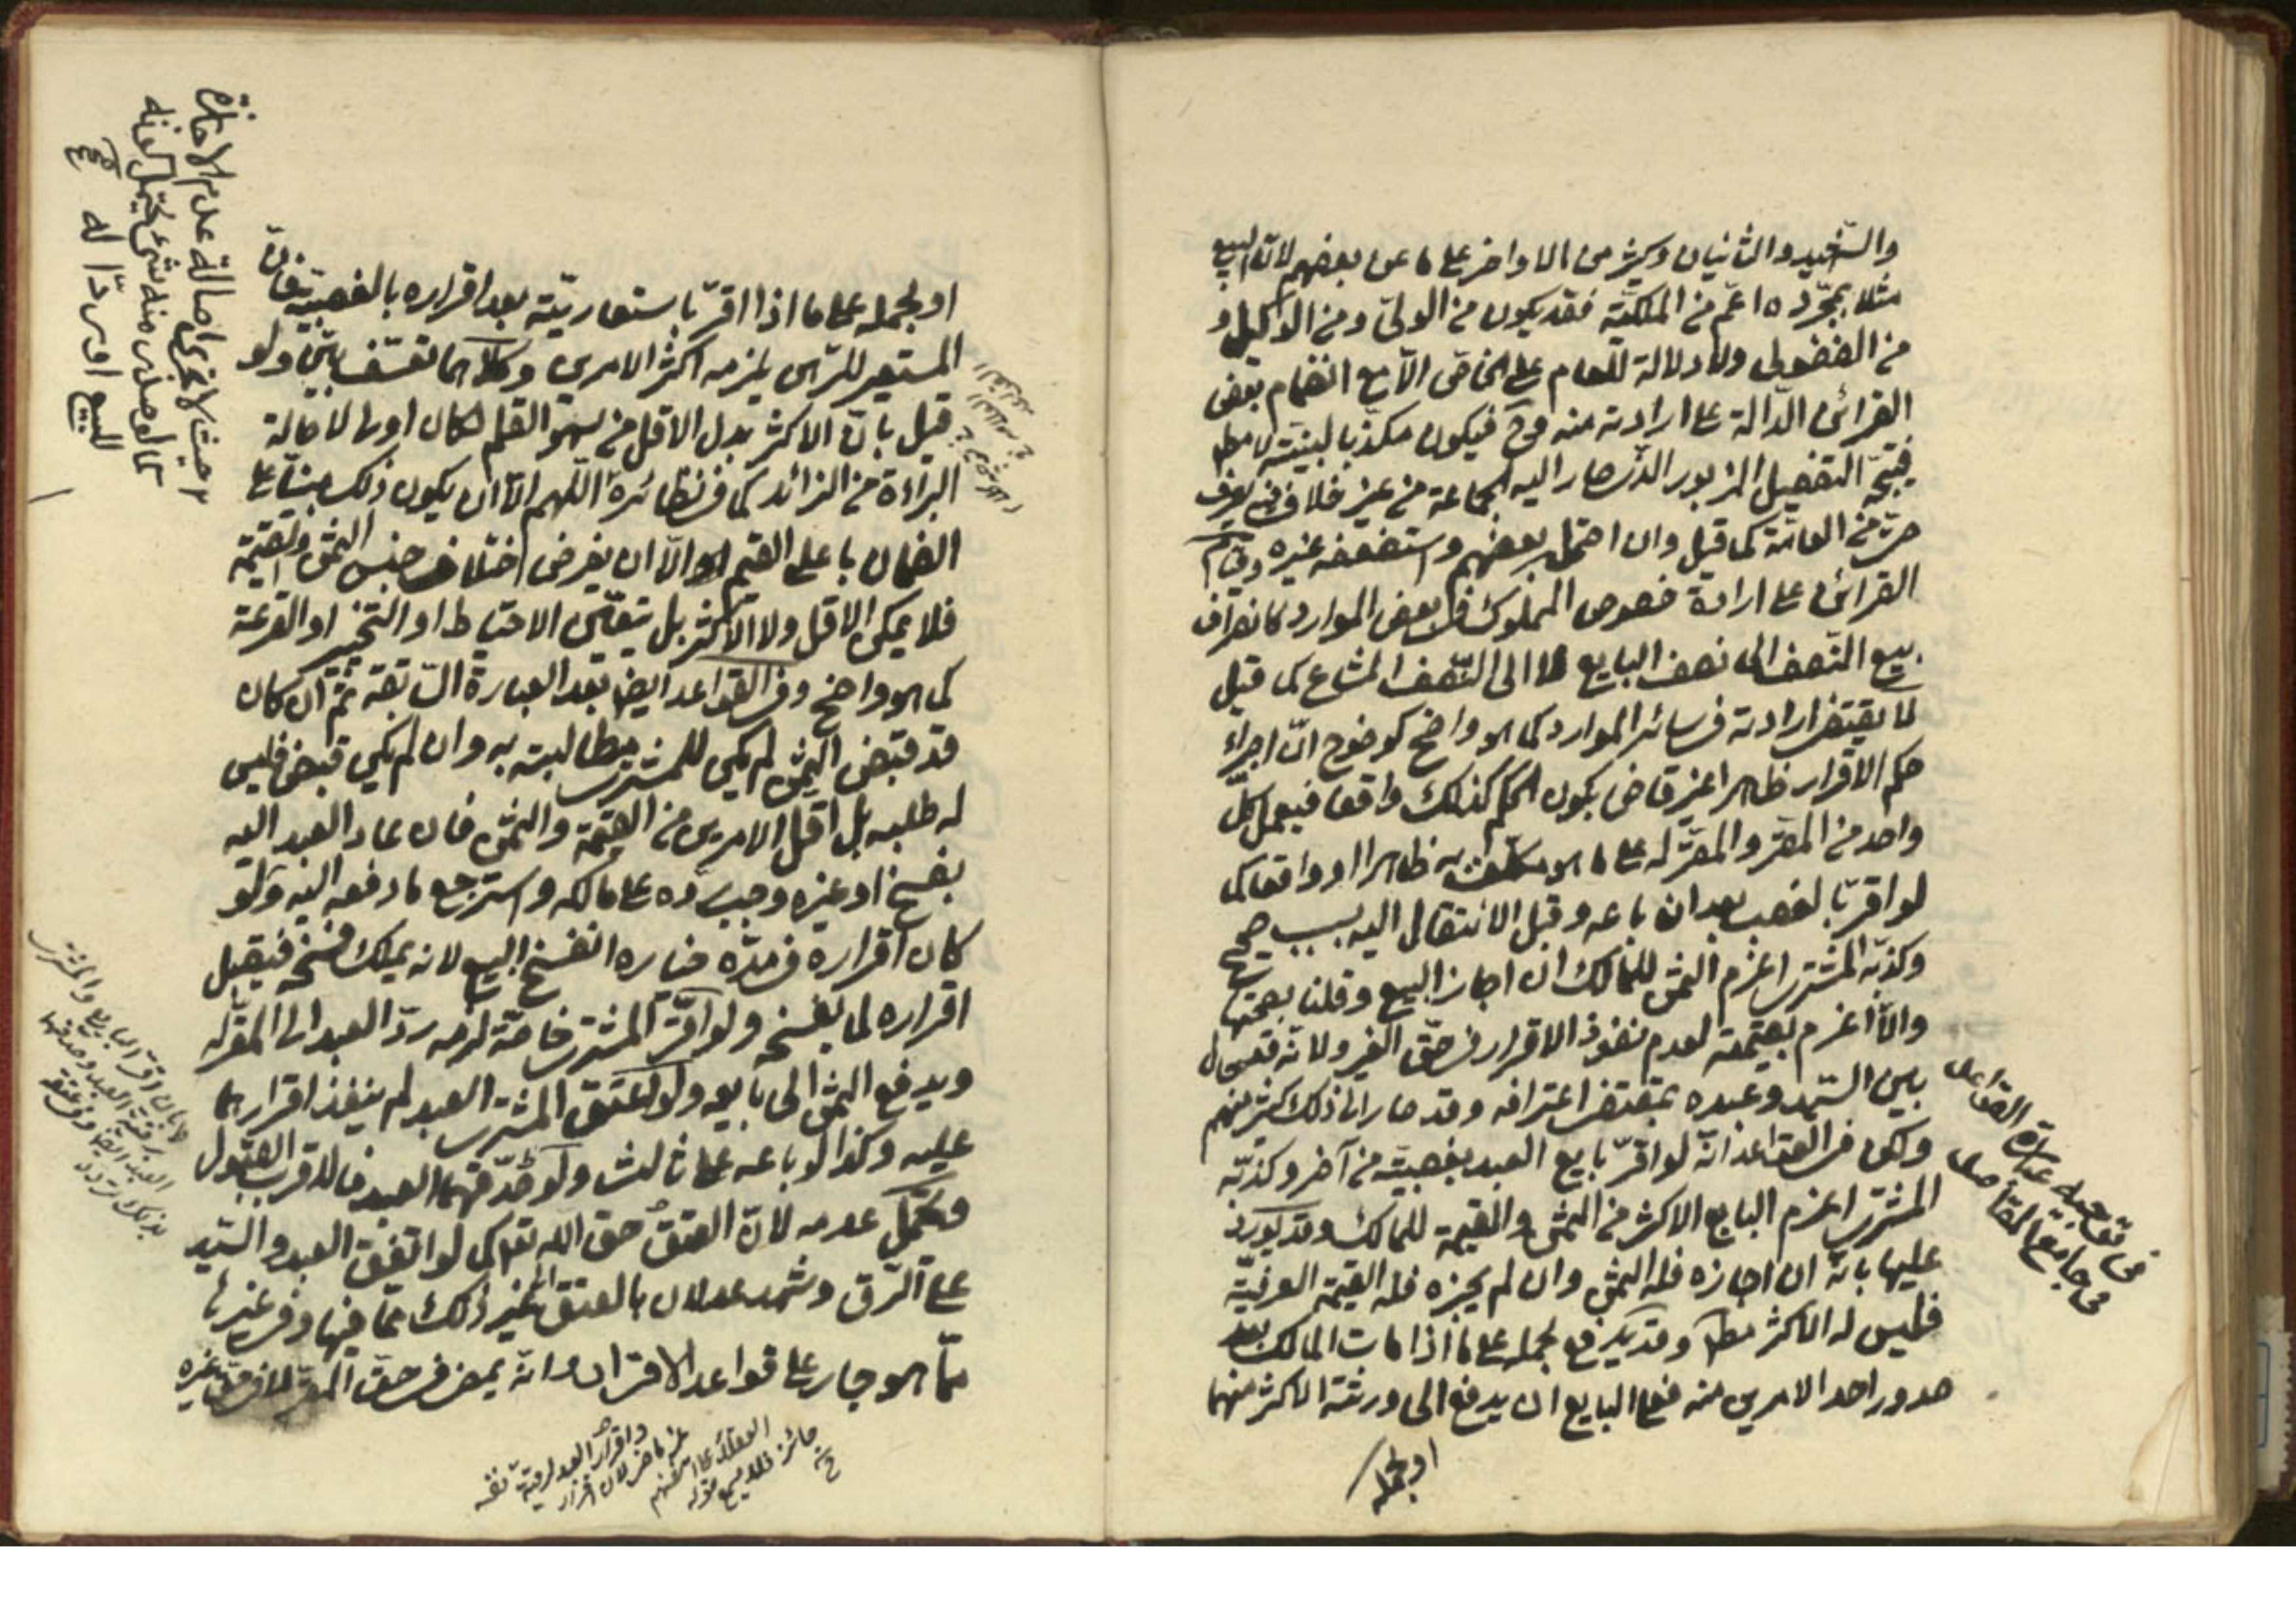 والشهيد والثانيان وكثير من الاواخر على ما عن بعضهم لانّ البيع
مثلا بمجرّده اعمّ من الملكيّة فقد يكون من الولىّ ومن الوكيل و
من الفضولى ولا دلالة للعام على الخاصّ الّا مع انضمام بعض
القرائن الدّالة على ارادته منه فيكون مكذّبا لبيّنته
فيتجّه التفصيل المزبور الذى صار اليه الجماعة من غير خلاف يعرف
من العامّة كما قيل وان احتمل بعضهم واستضعفه غيره وقيام
القرائن على ارادة خصوص المملوك فى بعض الموارد كانصراف
بيع النّصف الى نصف البايع لا الى النّصف المشاع كما قيل
لا يقتضى ارادته فى سائر الموارد كما هو واضح كوضوح انّ اجراء
حكم الاقرار ظاهرا غير قاض بكون الحكم كذلك واقعا فيعمل كلّ
واحد من المقرّ والمقرّ له على ما هو مكلّف به ظاهرا او واقعا كما
لو اقرّ بالغصب بعد ان باعه وقبل الانتقال اليه بسبب صحيح
وكذّبه المشترى اغرم الثمن للمالك ان اجاز البيع وقلنا بصحّته
والّا اغرم بقيمته لعدم نفوذ الاقرار فى حقّ الغير ولانّه قد حال
بين السيّد وعبده بمقتضى اعترافه وقد صار الى ذلك كثير منهم
ولكن فى القواعد انّه لو اقرّ بايع العبد بغصبيّته من آخر وكذّبه
المشترى اغرم البايع الاكثر من الثمن والقيمة للمالك وقد يورد
عليها بانّه ان اجازه فله الثمن وان لم يجزه فله القيمة
فليس له الاكثر مطلقا وقد يدفع بحمله على ما اذا مات المالك بعد
صدور احد الامرين منه فعلى البايع ان يدفع الى ورثته الاكثر منهما
او بحمله
فى توجيه عبارة القواعد
فى جامع المقاصد
او بحمله على ما اذا اقرّ باستعاريّته بعد اقراره بالغصبية فانّ
المستعير للرّهن يلزمه اكثر الامرين وكلاهما تعسّف بيّن ولو
قيل بانّ الاكثر بدل الاقل من سهو القلم لكان اولى لاصالة
البرائة من الزائد كما فى نظائره اللّهم الّا ان يكون ذلك مبنيّا على
الضمان باعلى القيم او الّا ان يفرض اختلاف جنس الثمن والقيمة
فلا يمكن الاقل ولا الاكثر بل يتعيّن الاحتياط او التخيير او القرعة
كما هو واضح وفى القواعد ايضا بعد العبارة السّابقة ثمّ ان كان
قد قبض الثمن لم يكن للمشترى مطالبته به وان لم يكن قبض فليس
له طلبه بل اقل الامرين من القيمة والثمن فان عاد العبد اليه
بفسخ او غيره وجب ردّه على مالكه واسترجع ما دفعه اليه ولو
كان اقراره فى مدّة خياره انفسخ البيع لانه يملك فسخه فيقبل
اقراره لما يفسخه ولو اقرّ المشترى خاصّة لزمه ردّ العبد الى المقرّ له
ويدفع الثمن الى بايعه ولو اعتق المشترى العبد لم ينفذ اقرارهما
عليه وكذا لو باعه على ثالث ولو صدّقهما العبد فالاقرب القبول
ويحتمل عدمه لانّ العتق حق اللّه تعالى كما لو اتفق العبد والسّيد
على الرّق وشهد عدلان بالعتق الى غير ذلك ممّا فيها وفى غيرها
ممّا هو جار على قواعد الاقرار وانّه يمضى فى حقّ المقرّ لا فى حقّ غيره
حيث لا يجرى اصالة عدم الاجازة
كما لو صدر منه شىء يحتمل كونه
للبيع او ردّا له صح
فان اقرّ البايع والمشترى